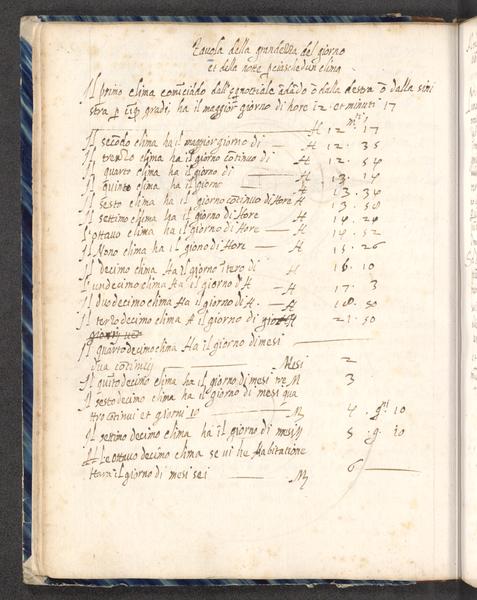 Tavola della grandezza del giorno
et della notte p ciaschedun clima
Il primo clima cominciādo dall'equnottiale ādādo ō dalla destra ō dalla sini
stra p gradi, ha il maggior giorno di hore 12 et minuti 17
H 12 mti 17
Il secōdo clima ha il maggior giorno di — H 12 . 35
Il terzo clima ha il giorno cōtinuo di H 12 . 54
Il quarto clima ha il giorno di — H 13 . 14
Il quinto clima ha il giorno — H 13 . 36
Il sesto clima ha il giorno cōtinuo di Hore H 13 . 58
Il settimo clima ha il giorno di Hore H 14 . 24
L'ottauo clima ha il giorno di Hore — H 14 . 52
Il Nono clima ha il giorno di Hore — H 15 . 26
Il decimo clima ha il giorno di H 16 . 10
L'undecimo clima ha il giorno d H — H 17 . 3
Il duodecimo clima ha il giorno di H . — H 18 . 50
Il terzo decimo clima H il giorno di H 21 . 50
Il quarto decimo clima Ha il giorno di mesi
dua cōtinui — Mesi 2
Il quīto decimo clima ha il giorno di mesi tre M 3
Il sesto decimo clima ha il giorno di mesi qua
ttro cōtinui et giorni 10 — M 4 . gni 10
Il settimo decimo clima ha il giorno di mesi M 5 . g. 10
Le ottauo decimo clima se ui he Habitatione
Hara il giorno di mesi sei — M 6